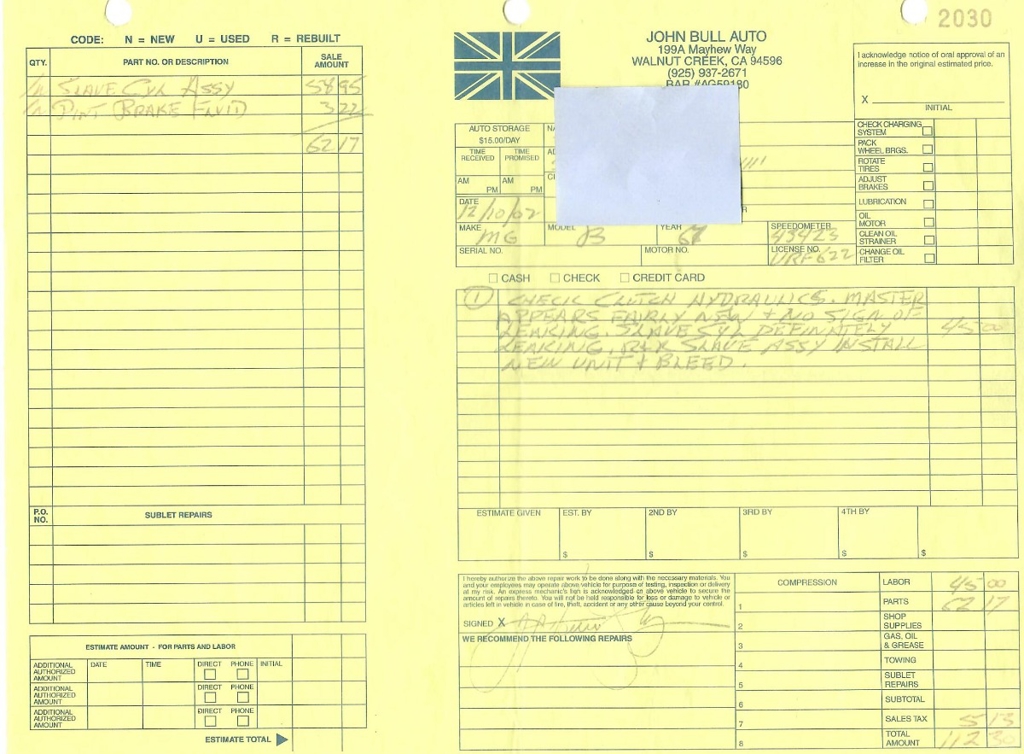 2030
CODE: N = NEW U = USED R = REBUILT
QTY. PART NO. OR DESCRIPTION SALE AMOUNT
1N SLAVE CYL ASSY 58 95
1N PINT BRAKE FLUID 3 22
62 17
P.O. NO. SUBLET REPAIRS
ESTIMATE AMOUNT - FOR PARTS AND LABOR
ADDITIONAL AUTHORIZED AMOUNT DATE TIME DIRECT PHONE INITIAL
ADDITIONAL AUTHORIZED AMOUNT DIRECT PHONE
ADDITIONAL AUTHORIZED AMOUNT DIRECT PHONE
ESTIMATE TOTAL
JOHN BULL AUTO
199A Mayhew Way
WALNUT CREEK, CA 94596
(925) 937-2671
BAR #AG59180
I acknowledge notice of oral approval of an
increase in the original estimated price.
X
INITIAL
AUTO STORAGE
$15.00/DAY
TIME RECEIVED TIME PROMISED
AM PM AM PM
DATE
12/10/02
MAKE MODEL YEAR SPEEDOMETER
MG B 67 43423
SERIAL NO. MOTOR NO. LICENSE NO.
URF622
CHECK CHARGING SYSTEM
PACK WHEEL BRGS.
ROTATE TIRES
ADJUST BRAKES
LUBRICATION
OIL MOTOR
CLEAN OIL STRAINER
CHANGE OIL FILTER
CASH CHECK CREDIT CARD
1 CHECK CLUTCH HYDRAULICS. MASTER
APPEARS FAIRLY NEW + NO SIGN OF
LEAKING. SLAVE CYL DEFINATELY 45 00
LEAKING. R&R SLAVE ASSY INSTALL
NEW UNIT + BLEED.
ESTIMATE GIVEN EST. BY 2ND BY 3RD BY 4TH BY
$ $ $ $ $
I hereby authorize the above repair work to be done along with the necessary materials. You
and your employees may operate above vehicle for purpose of testing, inspection or delivery
at my risk. An express mechanic's lien is acknowledged on above vehicle to secure the
amount of repairs thereto. You will not be held responsible for loss or damage to vehicle or
articles left in vehicle in case of fire, theft, accident or any other cause beyond your control.
SIGNED X
WE RECOMMEND THE FOLLOWING REPAIRS
COMPRESSION
1
2
3
4
5
6
7
8
LABOR 45 00
PARTS 62 17
SHOP SUPPLIES
GAS, OIL & GREASE
TOWING
SUBLET REPAIRS
SUBTOTAL
SALES TAX 5 13
TOTAL AMOUNT 112 30